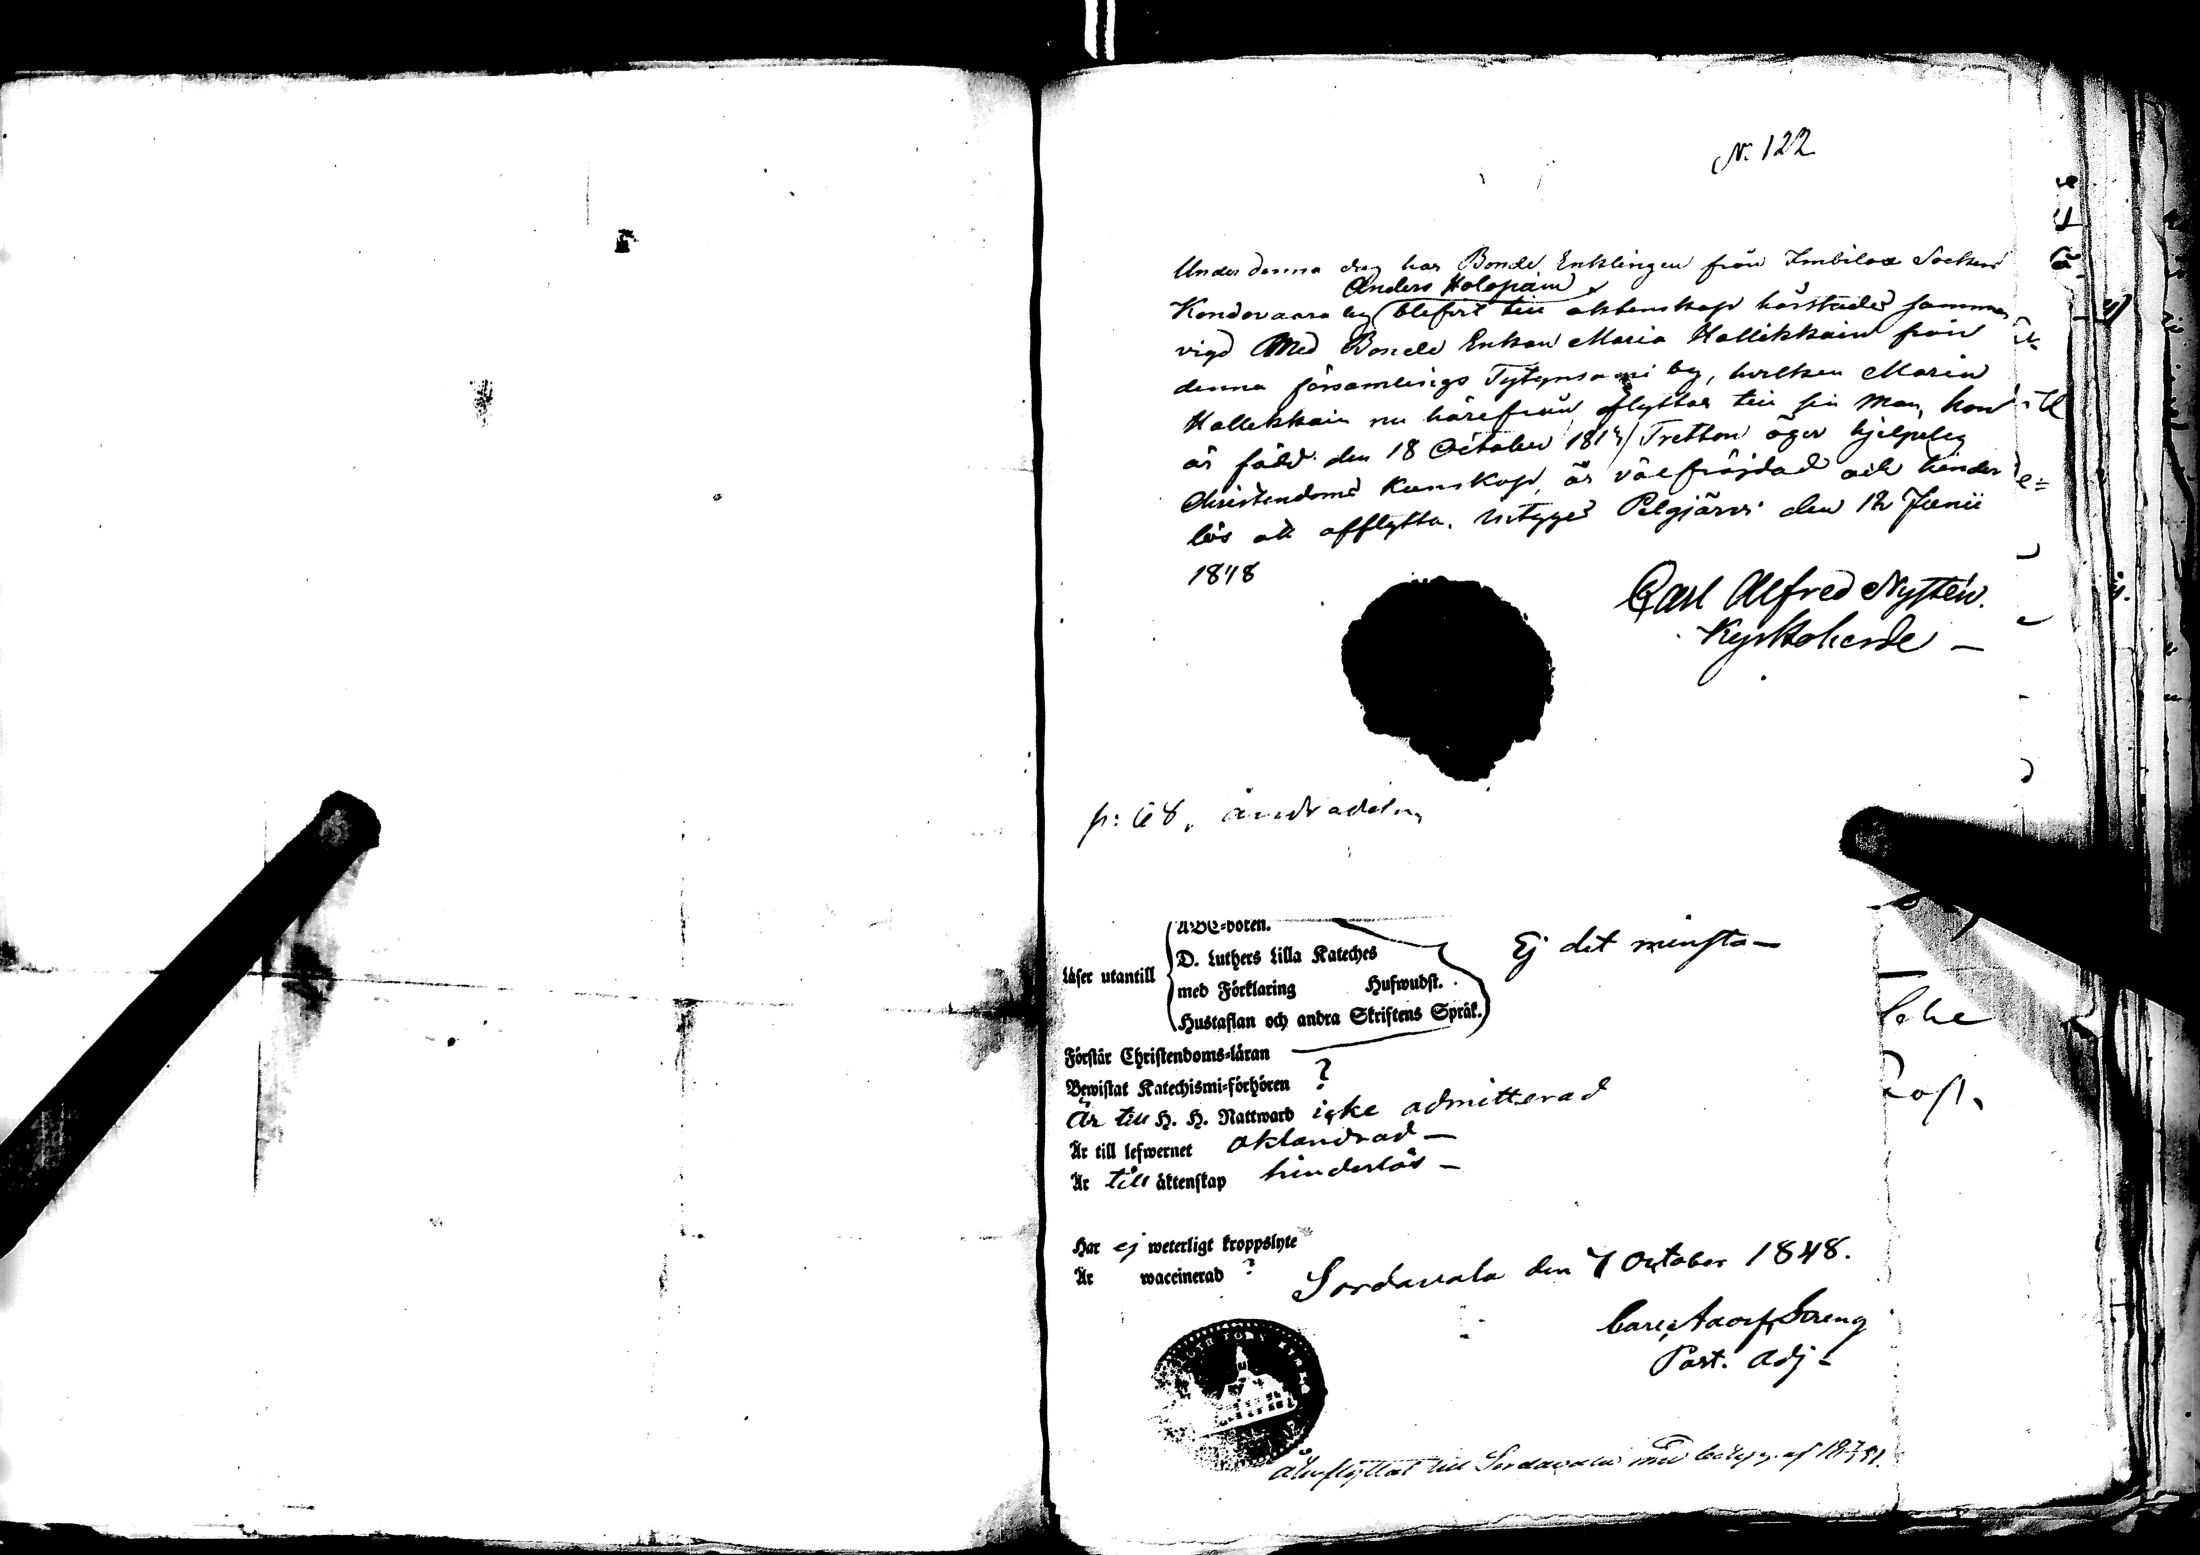 N: 122
Under denna dag har Bonde Enklingen från Imbilax Socken
Anders Holopain
Kondovaara by blifvit till äktenskap härstädes samman
vigd Med Bonde Enkan Maria Hallikkain från
denna församlings Tytynsami by, hvilken Maria
Hallikkain nu härifrån afflyttar till sin Man, hon
är född den 18 October 1813/Tretton äger hjelpelig
Christendoms Kunskap, är välfräjdad och hinder
lös att afflytta. Betygar Pelgjärvi den 12 Junii
1848
Carl Alfred Nyttén.
Kyrkoherde
p: 68, andra
ABC-boken.
Läser utantill
D. Luthers Lilla Kateches
med Förklaring Hufwudst.
Hustaflan och andra Skriftens Språk.
Ej det minsta
Förstår Christendoms-läran
Bewistat Katechismi-förhören ?
Är till H. H. Nattward icke admitterad
Är till lefwernet oklandrad
Är till äktenskap hinderlös
Har ej weterligt kroppslyte
Är waccinerad ?
Sordavala den 7 October 1848.
Carl Adolf Streng
Past. Adj
Återflyttat till Sordavala med betyg af